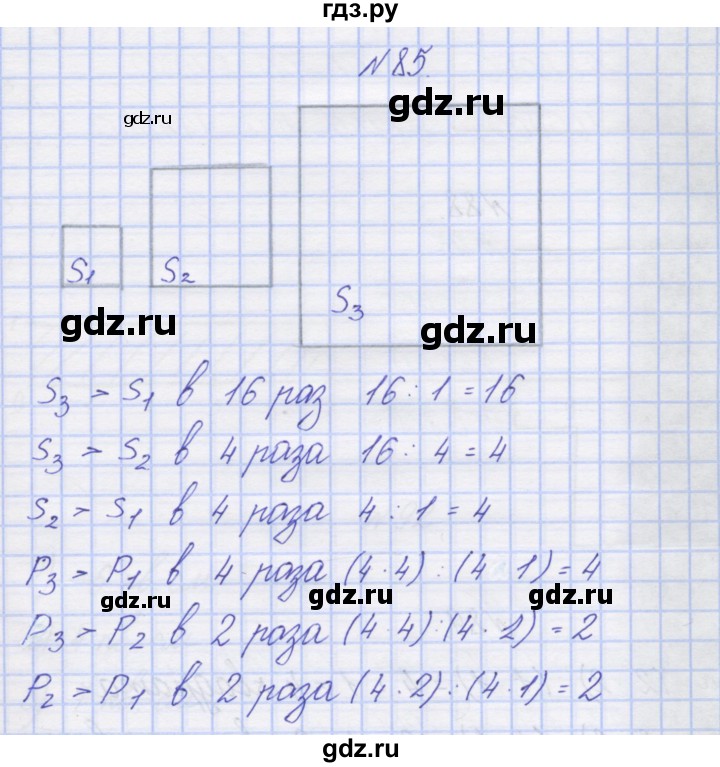 гдз.ру
№85.
gdz.ru
gdz.ru
S1 S2 S3
gdz.ru
gdz.ru
S3 > S1 в 16 раз 16 : 1 = 16
S3 > S2 в 4 раза 16 : 4 = 4
S2 > S1 в 4 раза 4 : 1 = 4
P3 > P1 в 4 раза (4·4) : (4 1) = 4
gdz.ru gdz.ru gdz.ru
P3 > P2 в 2 раза (4·4) : (4·2) = 2
P2 > P1 в 2 раза (4·2) : (4·1) = 2
gdz.ru